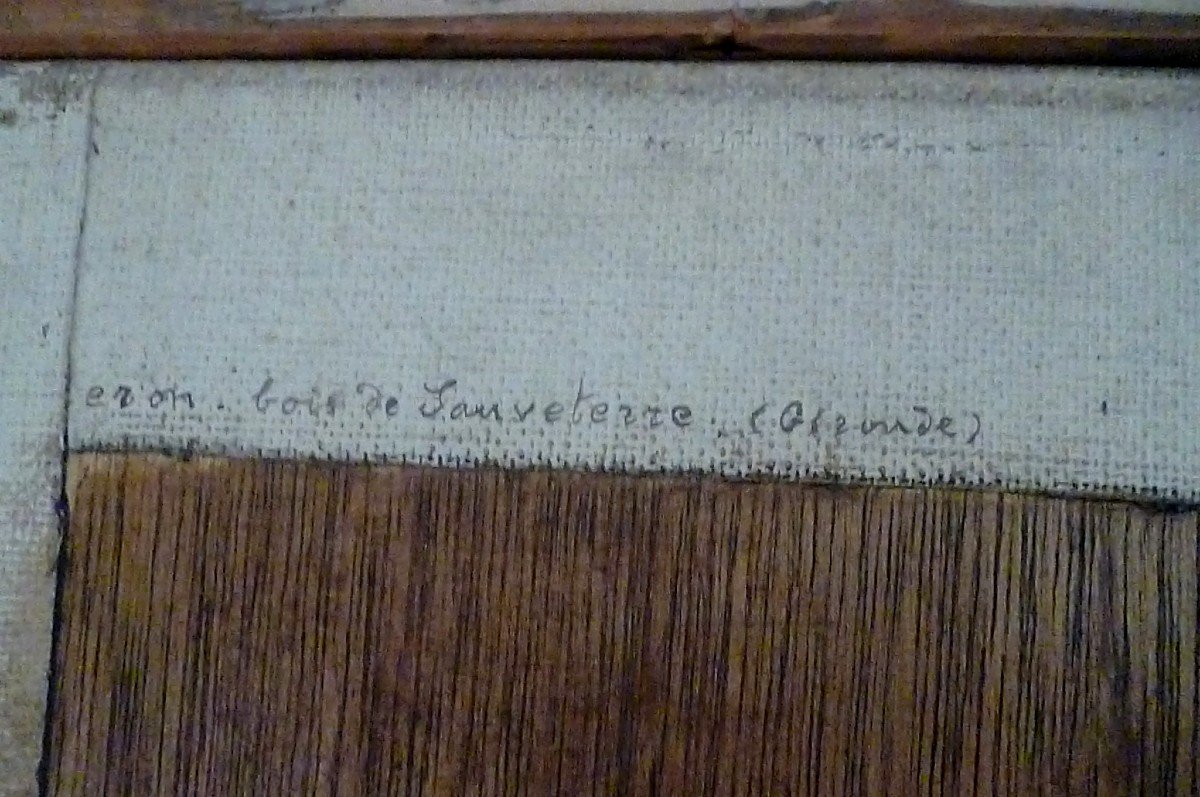 eron. bois de Sauveterre. (Gironde)